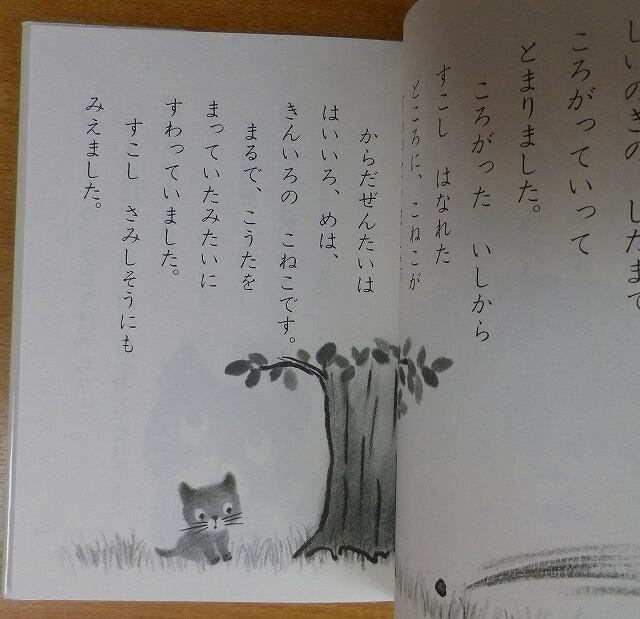 しいのきの　したまで
ころがっていって
とまりました。
ころがった　いしから
すこし　はなれた
ところに、こねこが
からだぜんたいは
はいいろ、めは、
きんいろの　こねこです。
まるで、こうたを
まっていたみたいに
すわっていました。
すこし　さみしそうにも
みえました。